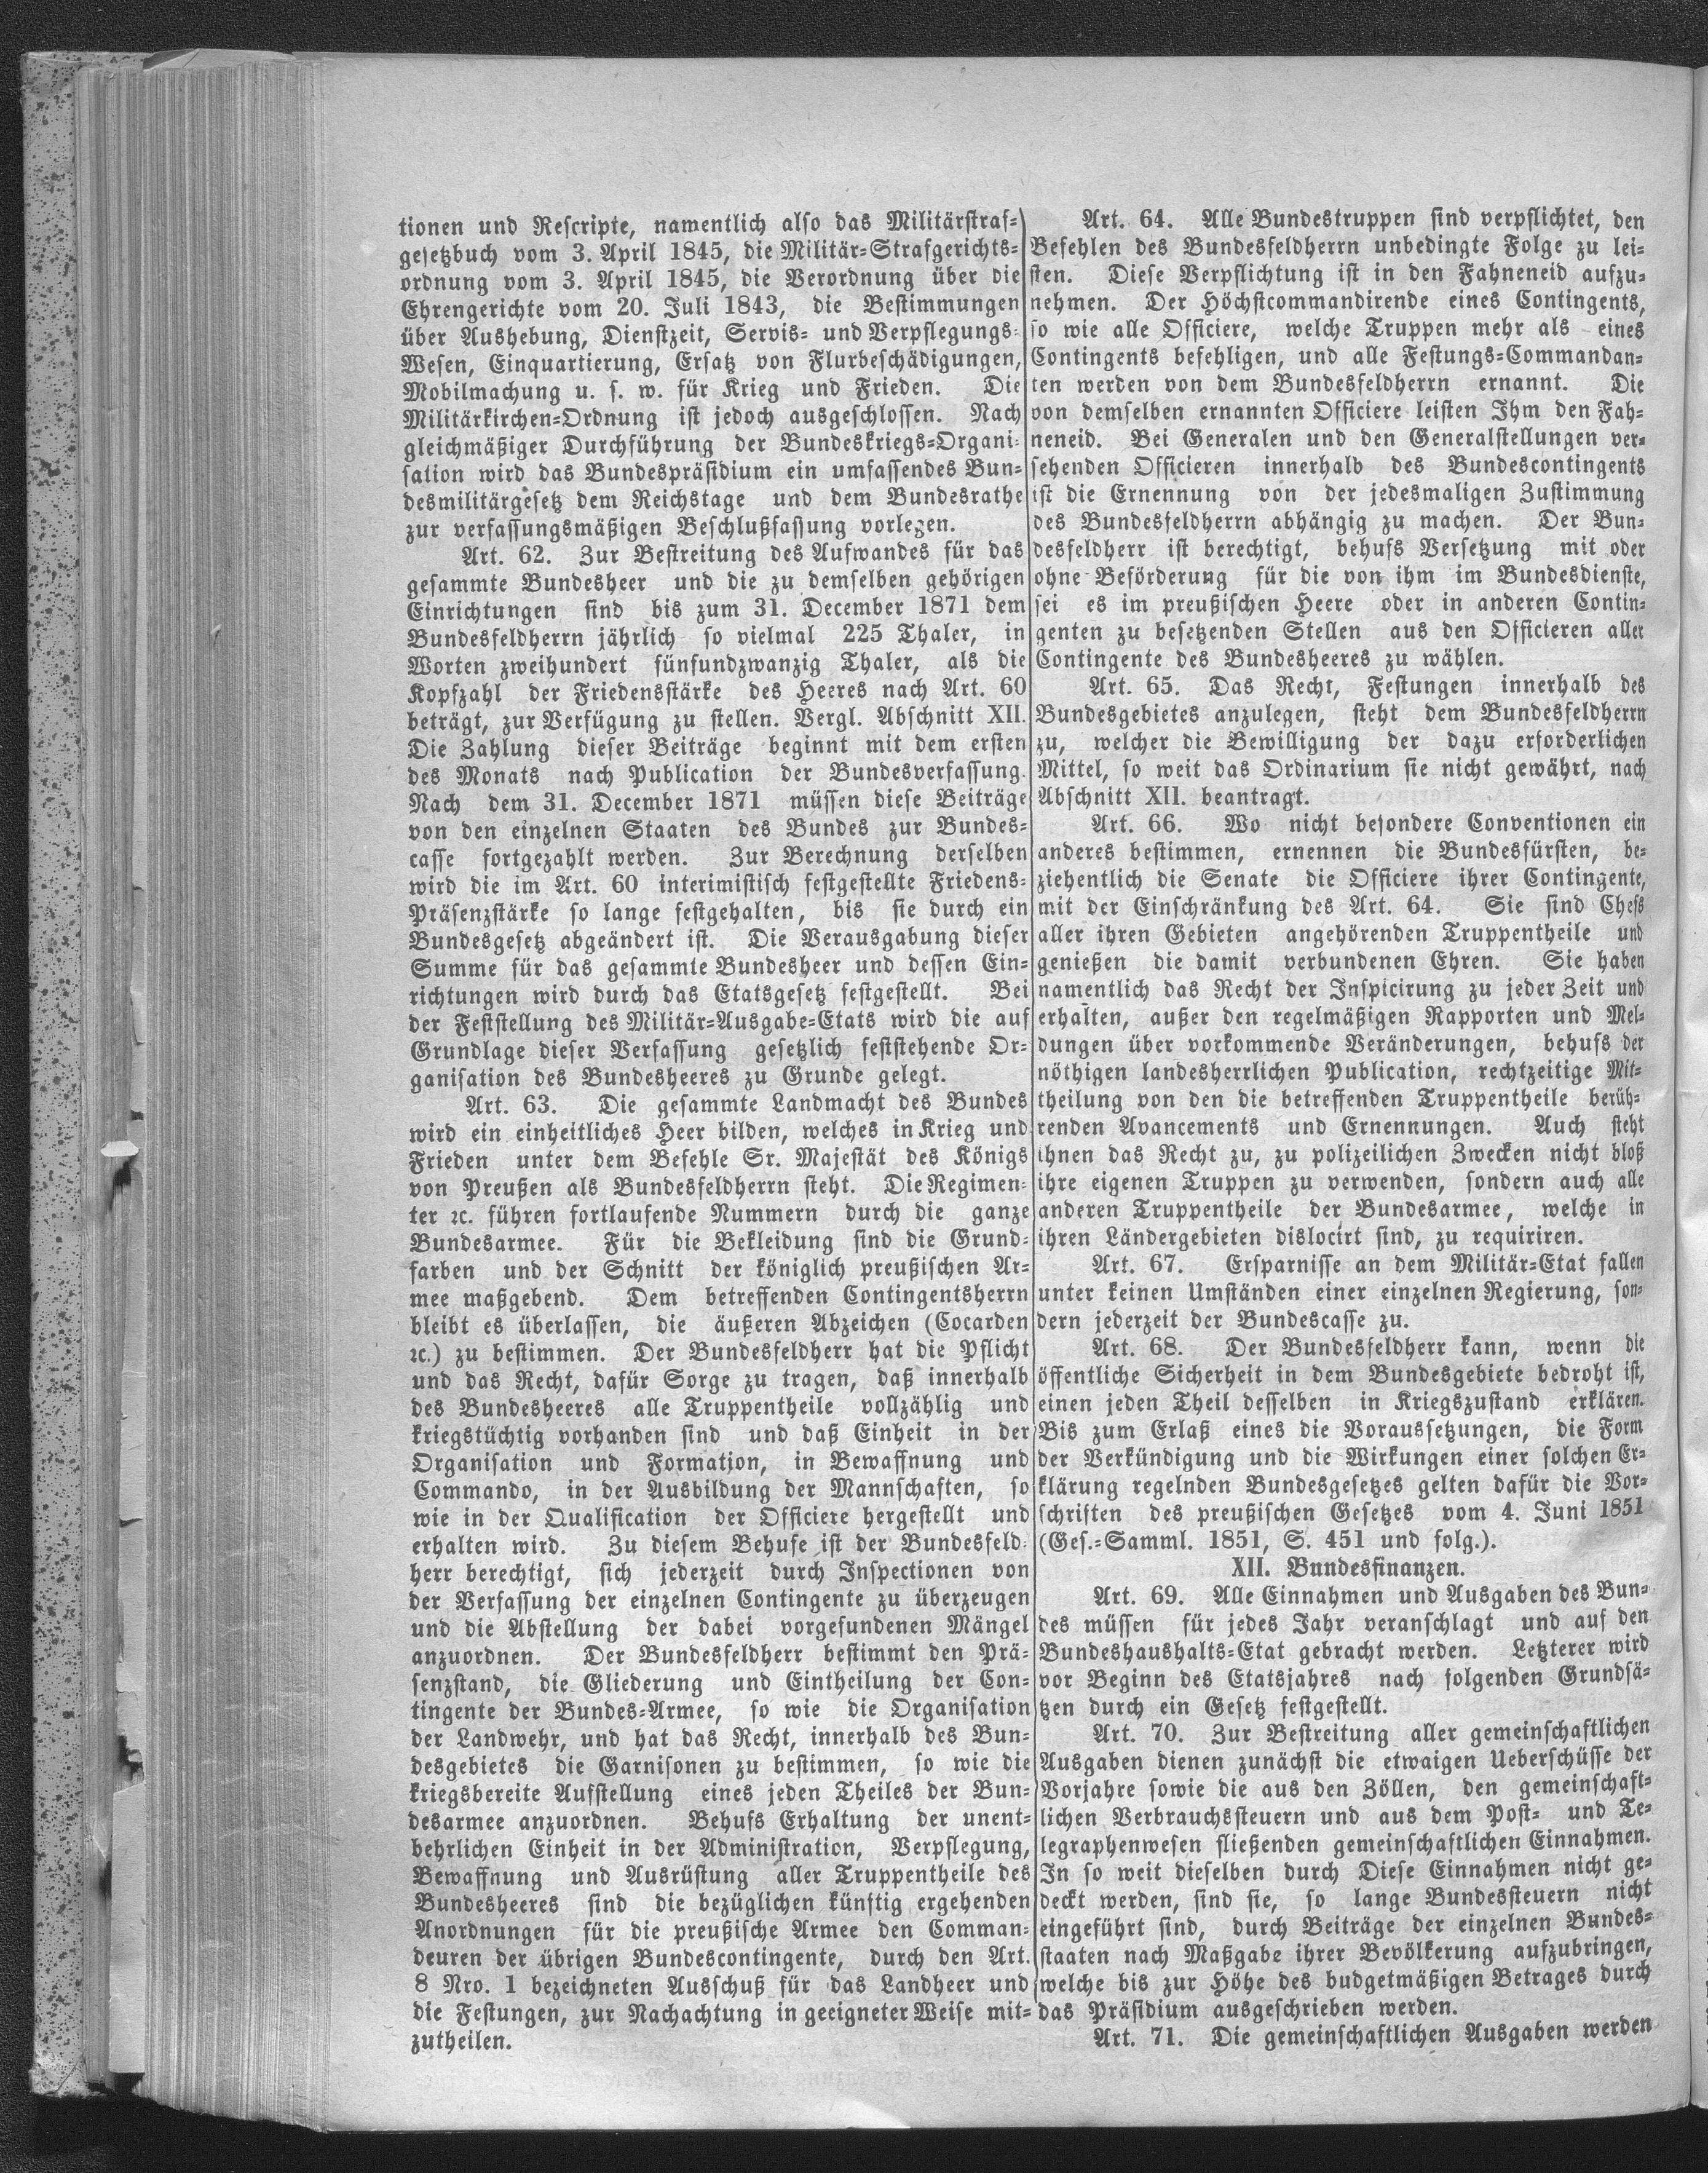 tionen und Rescripte, namentlich also das Militärstraf-
gesetzbuch vom 3. April 1845, die Militär-Strafgerichts-
ordnung vom 3. April 1845, die Verordnung über die
Ehrengerichte vom 20. Juli 1843, die Bestimmungen
über Aushebung, Dienstzeit, Servis- und Verpflegungs-
Wesen, Einquartierung, Ersatz von Flurbeschädigungen,
Mobilmachung u. s. w. für Krieg und Frieden. Die
Militärkirchen-Ordnung ist jedoch ausgeschlossen. Nach
gleichmäßiger Durchführung der Bundeskriegs-Organi-
sation wird das Bundespräsidium ein umfassendes Bun-
desmilitärgesetz dem Reichstage und dem Bundesrathe
zur verfassungsmäßigen Beschlußfassung vorlegen.
Art. 62. Zur Bestreitung des Aufwandes für das
gesammte Bundesheer und die zu demselben gehörigen
Einrichtungen sind bis zum 31. December 1871 dem
Bundesfeldherrn jährlich so vielmal 225 Thaler, in
Worten zweihundert fünfundzwanzig Thaler, als die
Kopfzahl der Friedensstärke des Heeres nach Art. 60
beträgt, zur Verfügung zu stellen. Vergl. Abschnitt XII.
Die Zahlung dieser Beiträge beginnt mit dem ersten
des Monats nach Publication der Bundesverfassung.
Nach dem 31. December 1871 müssen diese Beiträge
von den einzelnen Staaten des Bundes zur Bundes-
casse fortgezahlt werden. Zur Berechnung derselben
wird die im Art. 60 interimistisch festgestellte Friedens-
Präsenzstärke so lange festgehalten, bis sie durch ein
Bundesgesetz abgeändert ist. Die Verausgabung dieser
Summe für das gesammte Bundesheer und dessen Ein-
richtungen wird durch das Etatsgesetz festgestellt. Bei
der Feststellung des Militär-Ausgabe-Etats wird die auf
Grundlage dieser Verfassung gesetzlich feststehende Or-
ganisation des Bundesheeres zu Grunde gelegt.
Art. 63. Die gesammte Landmacht des Bundes
wird ein einheitliches Heer bilden, welches in Krieg und
Frieden unter dem Befehle Sr. Majestät des Königs
von Preußen als Bundesfeldherrn steht. Die Regimen-
ter ꝛc. führen fortlaufende Nummern durch die ganze
Bundesarmee. Für die Bekleidung sind die Grund-
farben und der Schnitt der königlich preußischen Ar-
mee maßgebend. Dem betreffenden Contingentsherrn
bleibt es überlassen, die äußeren Abzeichen (Cocarden
ꝛc.) zu bestimmen. Der Bundesfeldherr hat die Pflicht
und das Recht, dafür Sorge zu tragen, daß innerhalb
des Bundesheeres alle Truppentheile vollzählig und
kriegstüchtig vorhanden sind und daß Einheit in der
Organisation und Formation, in Bewaffnung und
Commando, in der Ausbildung der Mannschaften, so
wie in der Qualification der Officiere hergestellt und
erhalten wird. Zu diesem Behufe ist der Bundesfeld-
herr berechtigt, sich jederzeit durch Inspectionen von
der Verfassung der einzelnen Contingente zu überzeugen
und die Abstellung der dabei vorgefundenen Mängel
anzuordnen. Der Bundesfeldherr bestimmt den Prä-
senzstand, die Gliederung und Eintheilung der Con-
tingente der Bundes-Armee, so wie die Organisation
der Landwehr, und hat das Recht, innerhalb des Bun-
desgebietes die Garnisonen zu bestimmen, so wie die
kriegsbereite Aufstellung eines jeden Theiles der Bun-
desarmee anzuordnen. Behufs Erhaltung der unent-
behrlichen Einheit in der Administration, Verpflegung,
Bewaffnung und Ausrüstung aller Truppentheile des
Bundesheeres sind die bezüglichen künftig ergehenden
Anordnungen für die preußische Armee den Comman-
deuren der übrigen Bundescontingente, durch den Art.
8 Nro. 1 bezeichneten Ausschuß für das Landheer und
die Festungen, zur Nachachtung in geeigneter Weise mit-
zutheilen.
Art. 64. Alle Bundestruppen sind verpflichtet, den
Befehlen des Bundesfeldherrn unbedingte Folge zu lei-
sten. Diese Verpflichtung ist in den Fahneneid aufzu-
nehmen. Der Höchstcommandirende eines Contingents,
so wie alle Officiere, welche Truppen mehr als eines
Contingents befehligen, und alle Festungs-Commandan-
ten werden von dem Bundesfeldherrn ernannt. Die
von demselben ernannten Officiere leisten Ihm den Fah-
neneid. Bei Generalen und den Generalstellungen ver-
sehenden Officieren innerhalb des Bundescontingents
ist die Ernennung von der jedesmaligen Zustimmung
des Bundesfeldherrn abhängig zu machen. Der Bun-
desfeldherr ist berechtigt, behufs Versetzung mit oder
ohne Beförderung für die von ihm im Bundesdienste,
sei es im preußischen Heere oder in anderen Contin-
genten zu besetzenden Stellen aus den Officieren aller
Contingente des Bundesheeres zu wählen.
Art. 65. Das Recht, Festungen innerhalb des
Bundesgebietes anzulegen, steht dem Bundesfeldherrn
zu, welcher die Bewilligung der dazu erforderlichen
Mittel, so weit das Ordinarium sie nicht gewährt, nach
Abschnitt XII. beantragt.
Art. 66. Wo nicht besondere Conventionen ein
anderes bestimmen, ernennen die Bundesfürsten, be-
ziehentlich die Senate die Officiere ihrer Contingente,
mit der Einschränkung des Art. 64. Sie sind Chefs
aller ihren Gebieten angehörenden Truppentheile und
genießen die damit verbundenen Ehren. Sie haben
namentlich das Recht der Inspicirung zu jeder Zeit und
erhalten, außer den regelmäßigen Rapporten und Mel-
dungen über vorkommende Veränderungen, behufs der
nöthigen landesherrlichen Publication, rechtzeitige Mit-
theilung von den die betreffenden Truppentheile berüh-
renden Avancements und Ernennungen. Auch steht
ihnen das Recht zu, zu polizeilichen Zwecken nicht bloß
ihre eigenen Truppen zu verwenden, sondern auch alle
anderen Truppentheile der Bundesarmee, welche in
ihren Ländergebieten dislocirt sind, zu requiriren.
Art. 67. Ersparnisse an dem Militär-Etat fallen
unter keinen Umständen einer einzelnen Regierung, son-
dern jederzeit der Bundescasse zu.
Art. 68. Der Bundesfeldherr kann, wenn die
öffentliche Sicherheit in dem Bundesgebiete bedroht ist,
einen jeden Theil desselben in Kriegszustand erklären.
Bis zum Erlaß eines die Voraussetzungen, die Form
der Verkündigung und die Wirkungen einer solchen Er-
klärung regelnden Bundesgesetzes gelten dafür die Vor-
schriften des preußischen Gesetzes vom 4. Juni 1851
(Ges.-Samml. 1851, S. 451 und folg.).
XII. Bundesfinanzen.
Art. 69. Alle Einnahmen und Ausgaben des Bun-
des müssen für jedes Jahr veranschlagt und auf den
Bundeshaushalts-Etat gebracht werden. Letzterer wird
vor Beginn des Etatsjahres nach folgenden Grundsä-
tzen durch ein Gesetz festgestellt.
Art. 70. Zur Bestreitung aller gemeinschaftlichen
Ausgaben dienen zunächst die etwaigen Ueberschüsse der
Vorjahre sowie die aus den Zöllen, den gemeinschaft-
lichen Verbrauchssteuern und aus dem Post- und Te-
legraphenwesen fließenden gemeinschaftlichen Einnahmen.
In so weit dieselben durch Diese Einnahmen nicht ge-
deckt werden, sind sie, so lange Bundessteuern nicht
eingeführt sind, durch Beiträge der einzelnen Bundes-
staaten nach Maßgabe ihrer Bevölkerung aufzubringen,
welche bis zur Höhe des budgetmäßigen Betrages durch
das Präsidium ausgeschrieben werden.
Art. 71. Die gemeinschaftlichen Ausgaben werden